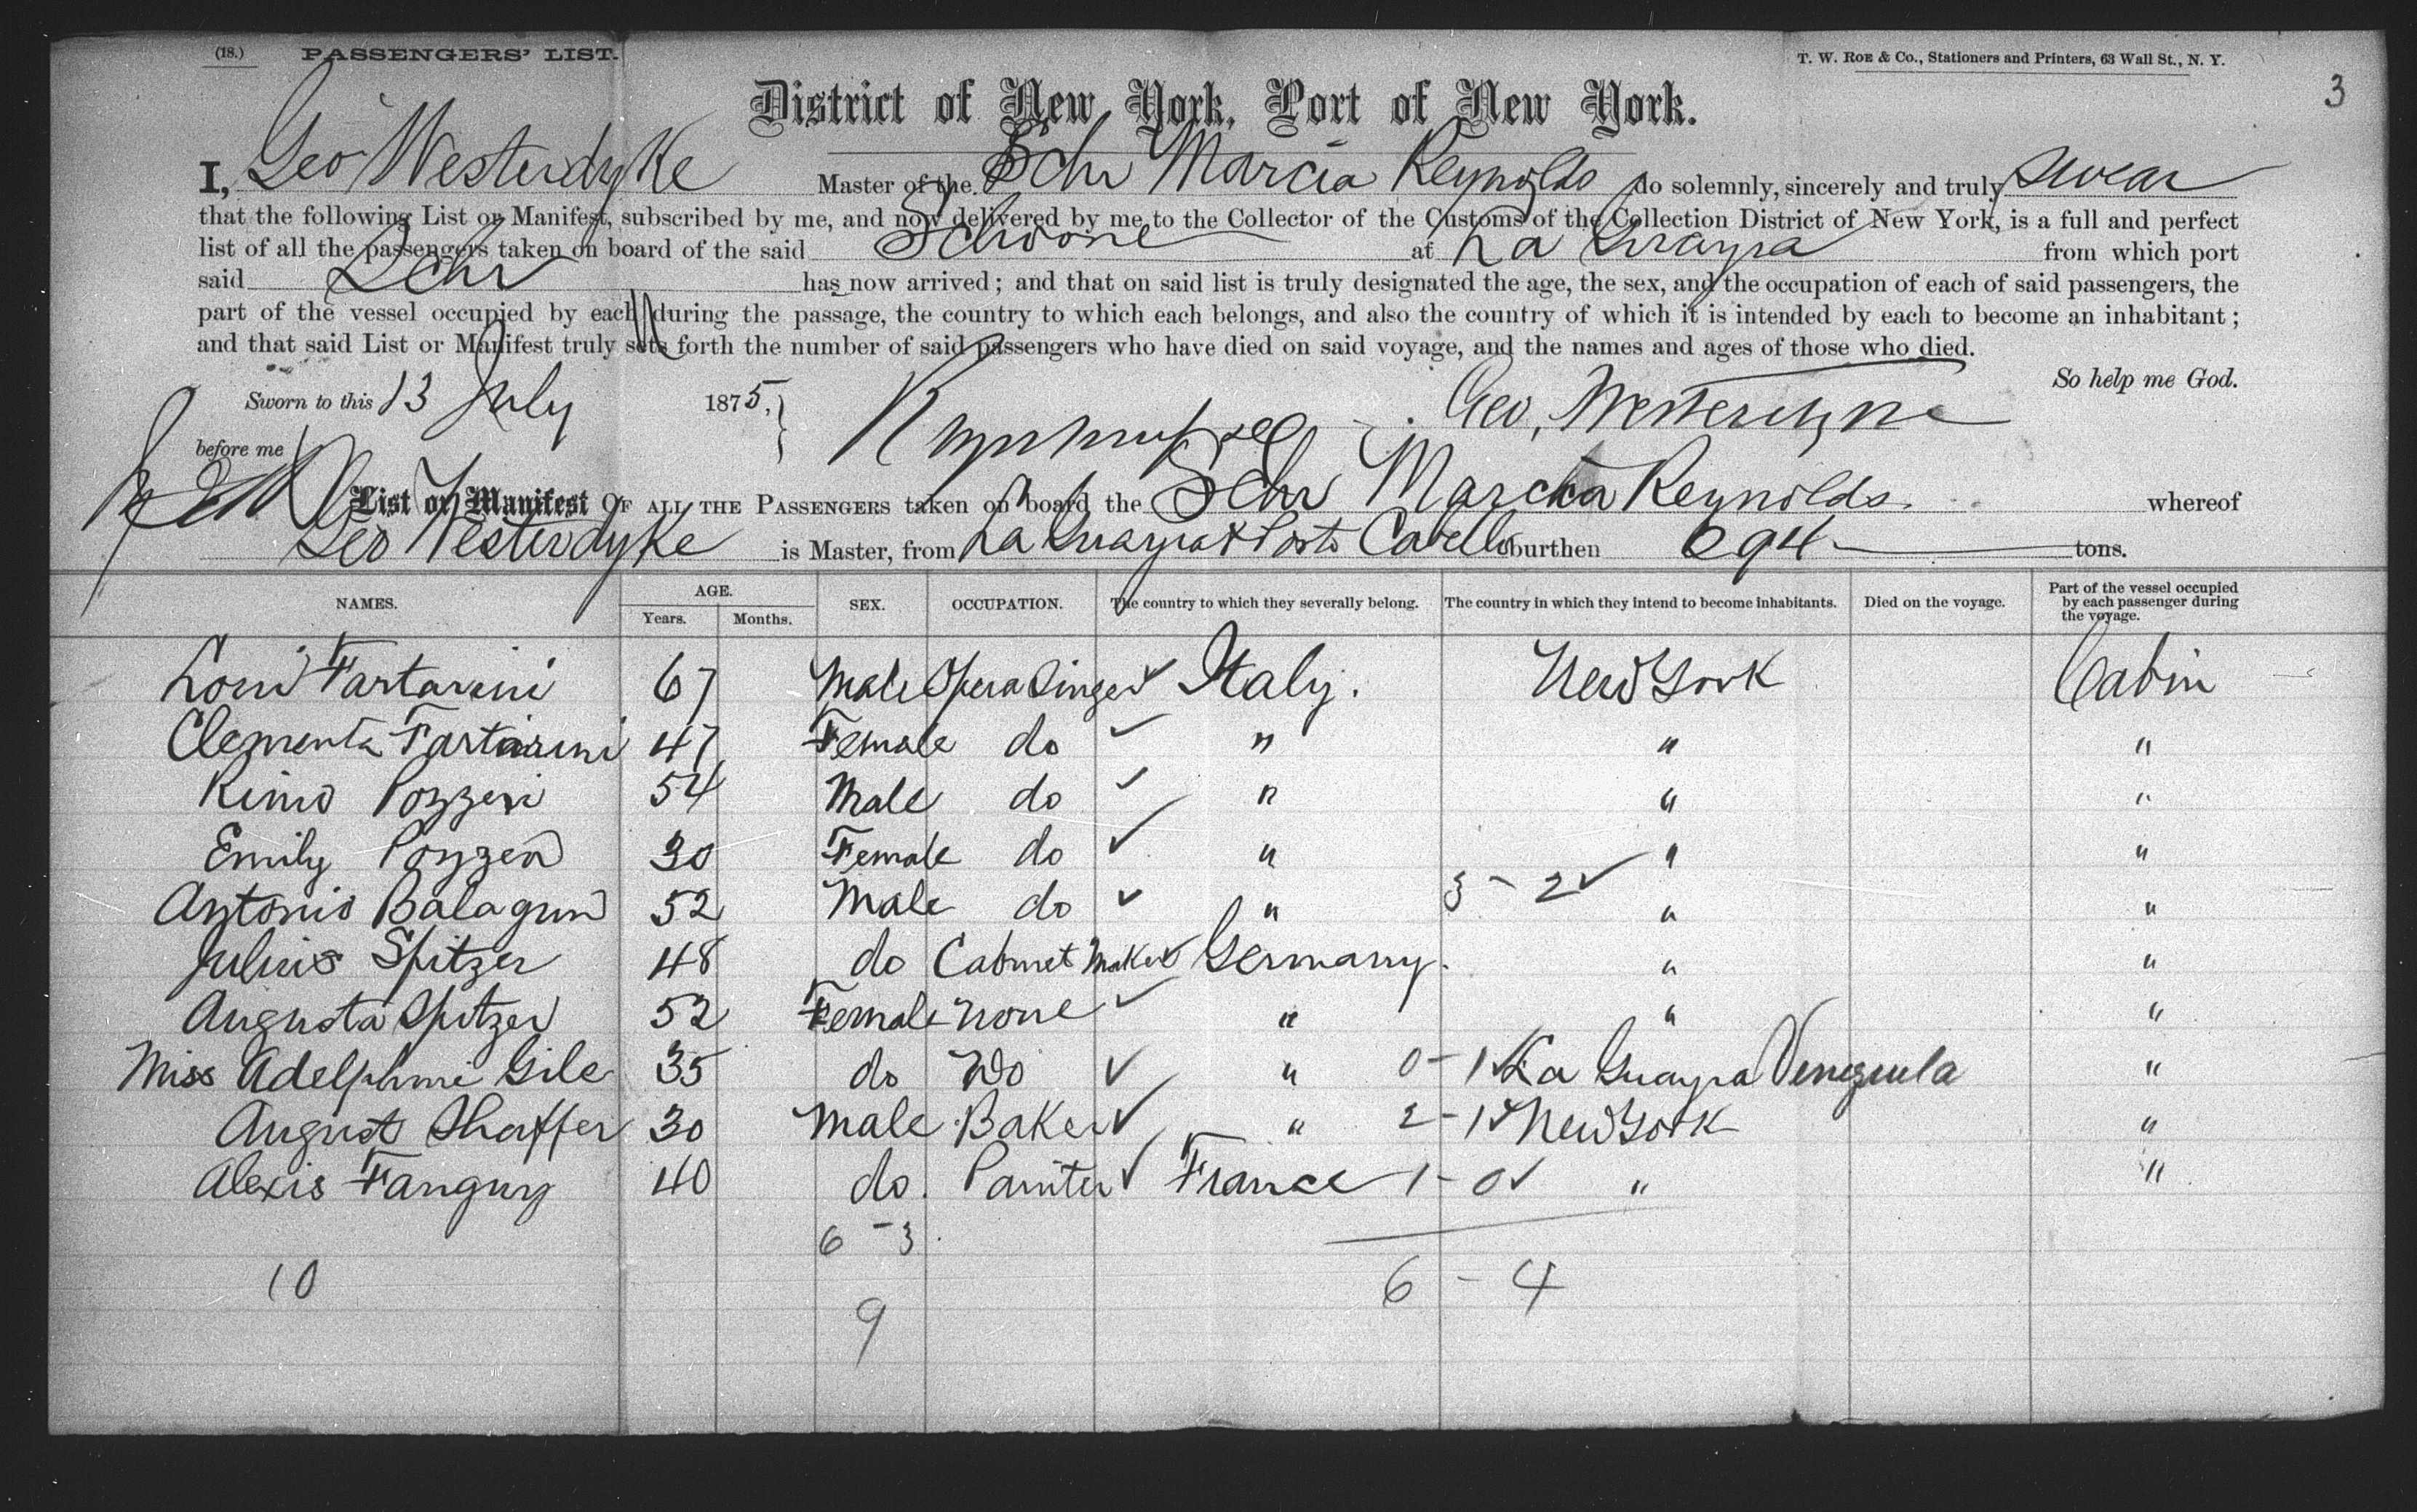 (18.) PASSENGERS' LIST.
T. W. ROE & Co., Stationers and Printers, 63 Wall St., N. Y.
3
District of New York, Port of New York.
I, Geo Westerdyke Master of the Schr Marcia Reynolds do solemnly, sincerely and truly swear
that the following List or Manifest, subscribed by me, and now delivered by me to the Collector of the Customs of the Collection District of New York, is a full and perfect
list of all the passengers taken on board of the said Schooner at La Guayra from which port
said Schr has now arrived; and that on said list is truly designated the age, the sex, and the occupation of each of said passengers, the
part of the vessel occupied by each during the passage, the country to which each belongs, and also the country of which it is intended by each to become an inhabitant;
and that said List or Manifest truly sets forth the number of said passengers who have died on said voyage, and the names and ages of those who died.
So help me God.
Sworn to this 13 July 1875, Geo, Westerdyke
before me
List or Manifest OF ALL THE PASSENGERS taken on board the Schr Marcia Reynolds whereof
Geo Westerdyke is Master, from La Guayra & Porto Cavello burthen 694 tons.
NAMES. AGE. Years. Months. SEX. OCCUPATION. The country to which they severally belong. The country in which they intend to become inhabitants. Died on the voyage. Part of the vessel occupied by each passenger during the voyage.
Loui Tartarini 67 Male Opera Singer ✓ Italy. New York Cabin
Clementa Tartarini 47 Female do ✓ " " "
Rimo Pozzeri 54 Male do ✓ " " "
Emily Pozzeri 30 Female do ✓ " " "
3 - 2 ✓
Antonio Balaguri 52 Male do ✓ " " "
Julius Spitzer 48 do Cabinet Maker ✓ Germany. " "
Augusta Spitzer 52 Female none ✓ " " "
Miss Adelphine Gile 35 do Do ✓ " 0 - 1 ✓ La Guayra Venezuela "
August Shaffer 30 Male Baker ✓ " 2 - 1 ✓ New York "
Alexis Tanguy 40 do. Painter ✓ France 1 - 0 ✓ " "
6 - 3
10 6 - 4
9